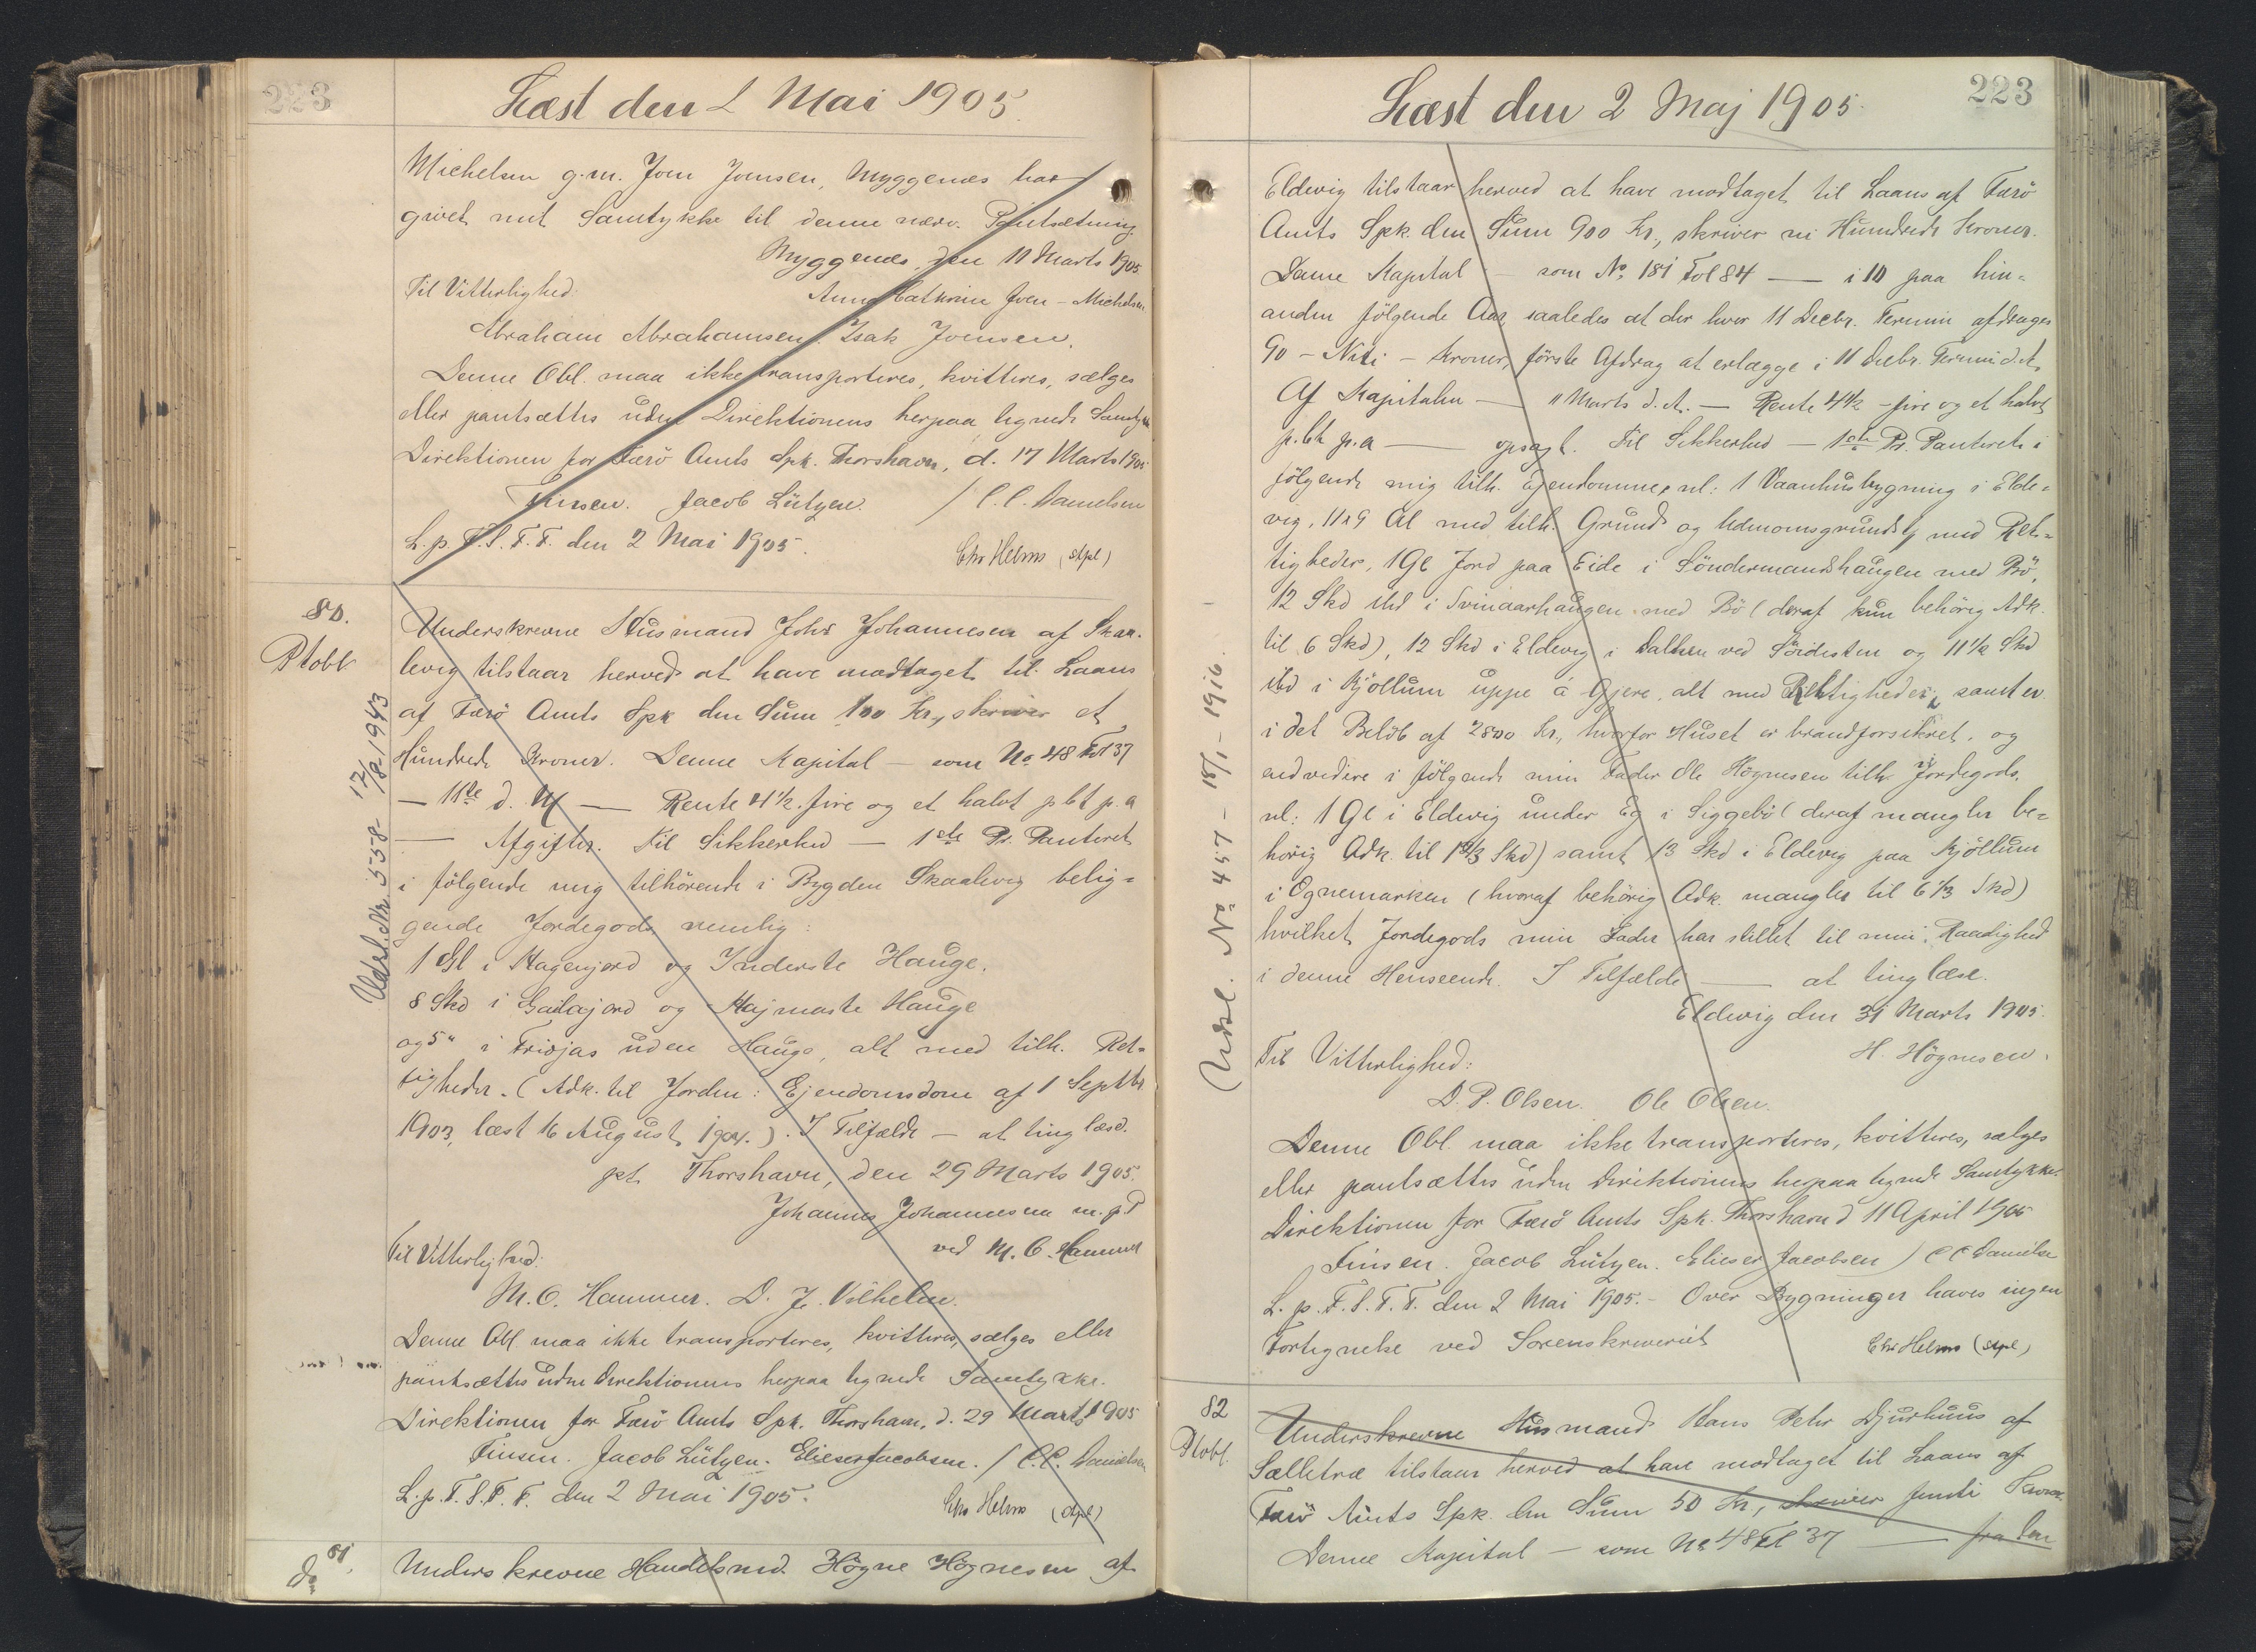 Læst den 2 Mai 1905.
Michelsen g.m. Joen Joensen, Myggenæs har
givet mit Samtykke til denne nærv. Pantsætning
Myggenæs, den 11 Marts 1905
Til Vitterlighed:
Anna Cathrine Joen-Michelsen
Abraham Abrahamsen. Isak Joensen.
Denne Obl. maa ikke transporteres, kvitteres, sælges
eller pantsættes uden Direktionens herpaa tegnede Samtykke
Direktionen for Færö Amts Spk. Thorshavn, d. 17 Marts 1905
Finsen. Jacob Lützen. / C. C. Danielsen
L. p. F. S. T. T. den 2 Mai 1905.
Chr Helms (stpl)
80.
Ptobl
Underskrevne Husmand Johs Johannesen af Skaa-
levig tilstaar herved at have modtaget til Laans
af Færö Amts Spk den Sum 100 Kr., skriver et
Hundrede Kroner. Denne Kapital — som No 48 Fol 37
— 11te d. M — Rente 4½ fire og et halvt pCt p. a
— Afgifter. Til Sikkerhed — 1ste Pr. Panteret
i følgende mig tilhörende i Bygden Skaalevig belig=
gende Jordegods nemlig:
1 Gl i Hagenjord og Inderste Hauge.
8 Skd i Gailajord og Hajmaste Hauge
og 5 " i Trivjas uden Hauge, alt med tilh. Ret=
tigheder. (Adk. til Jorden: Ejendomsdom af 1 Septbr
1903, læst 16 August 1904.). I Tilfælde — at tinglæse.
pt. Thorshavn, den 29 Marts 1905.
Johannes Johannesen m. p. P
ved M. C. Hammer
Til Vitterlighed:
M. C. Hammer. D. J. Vilhelm.
Denne Obl. maa ikke transporteres, kvitteres, sælges eller
pantsættes uden Direktionens herpaa tegnede Samtykke.
Direktionen for Færö Amts Spk. Thorshavn, d. 29 Marts 1905
Finsen. Jacob Lützen. Elieser Jacobsen. / C. C. Danielsen
L. p. F. S. T. T. den 2 Mai 1905.
Chr Helms (stpl)
Udsl. Nr. 558- 17/8-1943
81.
do
Underskrevne Handelsmd. Högne Högnesen af
223
Læst den 2 Maj 1905.
Eldevig tilstaar herved at have modtaget til Laans af Færö
Amts Spk. den Sum 900 Kr., skriver ni Hundrede Kroner.
Denne Kapital — som No. 181 Fol 84 — i 10 paa hin=
anden fölgende Aar, saaledes at der hver 11 Decbr. Termin afdrages
90 - Niti - Kroner, förste Afdrag at erlægge i 11 Decbr. Termin d. A.
Af Kapitalen — 11 Marts d. A. — Rente 4½ - fire og et halvt
p. Ct. p. a — opsagt. Til Sikkerhed — 1ste Pr. Panteret i
fölgende mig tilh. Ejendomme, nl: 1 Vaanhusbygning i Elde=
vig, 11 x 9 Al med tilh. Grund og Udenomsgrundstk med Ret=
tigheder, 1 Gl Jord paa Eide i Söndermandshaugen med Bö,
12 Skd ibd i Svinaarhaugen med Bö (deraf kun behörig Adk.
til 6 Skd), 12 Skd i Eldevig i Dalhen ved Söidisten og 11½ Skd
ibd i Kjöllum uppe á Gjere, alt med Rettigheder, samt ev.
i det Belöb af 2800 Kr., hvorfor Huset er brandforsikret, og
endvidere i fölgende min Fader Ole Högnesen tilh. Jordegods,
nl: 1 Gl i Eldevig under Eg i Siggebö (deraf mangler be=
hörig Adk. til 1⅔ Skd) samt 13 Skd i Eldevig paa Kjöllum
i Ognemarken (hvoraf behörig Adk. mangler til 6⅓ Skd)
hvilket Jordegods min Fader har stillet til min Raadighed
i denne Henseende. I Tilfælde — at tinglæse.
Eldevig den 31 Marts 1905.
H. Högnesen.
Til Vitterlighed:
D. P. Olsen. Ole Olsen.
Denne Obl. maa ikke transporteres, kvitteres, sælges
eller pantsættes uden Direktionens herpaa tegnede Samtykke.
Direktionen for Færö Amts Spk. Thorshavn d 11 April 1905
Finsen. Jacob Lützen. Elieser Jacobsen / C C Danielsen
L. p. F. S. T. T. den 2 Mai 1905. - Over Bygninger haves ingen
Fortegnelse ved Sorenskriveriet
Chr Helms (stpl)
Udsl. No 457 - 18/1 - 1916.
82
Ptobl.
Underskrevne Husmand Hans Peter Djurhuus af
Sælletræ tilstaar herved at have modtaget til Laans af
Færö Amts Spk. den Sum 50 Kr., skriver femti Kroner.
Denne Kapital — som No 48 Fol 37 — fra den